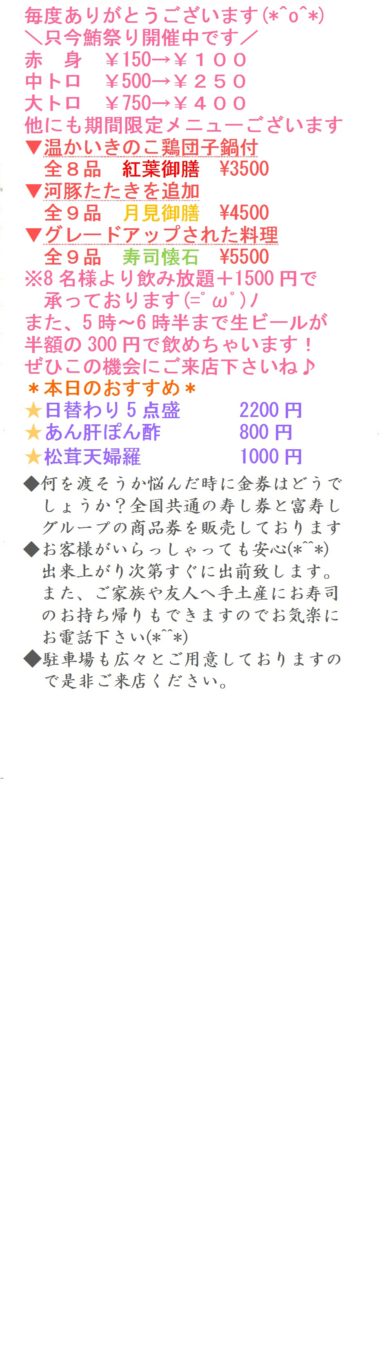 毎度ありがとうございます(*^o^*)
＼只今鮪祭り開催中です／
赤　身　￥150→￥１００
中トロ　￥500→￥２５０
大トロ　￥750→￥４００
他にも期間限定メニューございます
▼温かいきのこ鶏団子鍋付
全８品　紅葉御膳　¥3500
▼河豚たたきを追加
全９品　月見御膳　¥4500
▼グレードアップされた料理
全９品　寿司懐石　¥5500
※8 名様より飲み放題＋1500 円で
承っております(=ﾟωﾟ)ﾉ
また、5 時～6 時半まで生ビールが
半額の 300 円で飲めちゃいます！
ぜひこの機会にご来店下さいね♪
＊本日のおすすめ＊
★日替わり 5 点盛　2200 円
★あん肝ぽん酢　800 円
★松茸天婦羅　1000 円
◆何を渡そうか悩んだ時に金券はどうで
しょうか？全国共通の寿し券と富寿し
グループの商品券を販売しております
◆お客様がいらっしゃっても安心(*^^*)
出来上がり次第すぐに出前致します。
また、ご家族や友人へ手土産にお寿司
のお持ち帰りもできますのでお気楽に
お電話下さい(*^^*)
◆駐車場も広々とご用意しておりますの
で是非ご来店ください。